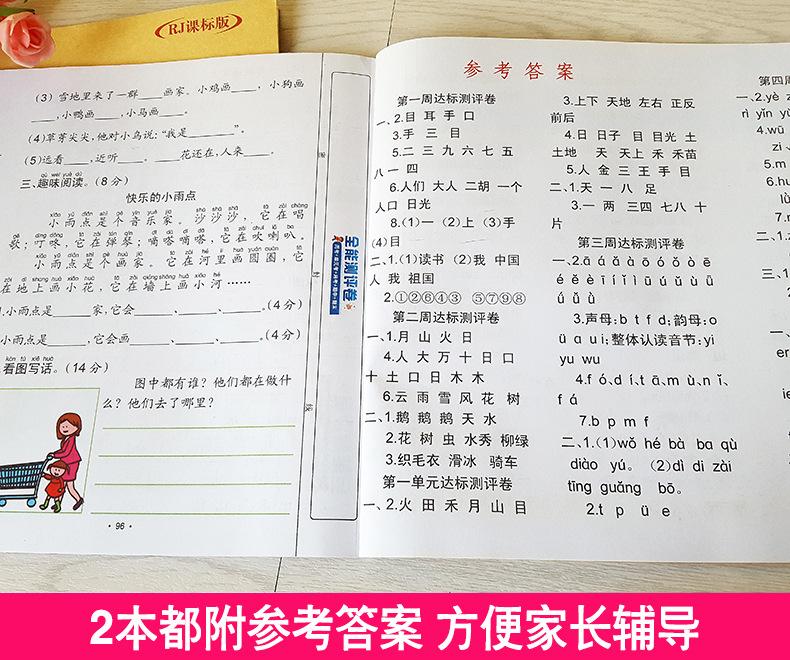 RJ课标版
(3)雪地里来了一群____画家。小鸡画____,小狗画
____,小鸭画____,小马画____。
(4)草芽尖尖,他对小鸟说:“我是______”。
(5)远看____,近听____。____花还在,人来____。
qù wèi yuè dú
三、趣味阅读。(8分)
快乐的小雨点
xiǎo yǔ diǎn shì gè yīn yuè jiā shā shā shā tā zài chàng
小雨点是个音乐家。沙沙沙,它在唱
歌;叮咚,它在弹琴;嘀嗒嘀嗒,它在吹喇叭。
小雨点是个画家。它在河里画圆圈,它
在地上画小花,它在墙上画小河……
小雨点是____家,它会____、____、____。(4分)
小雨点是____,它会画____、____、____。(4分)
kàn tú xiě huà
看图写话。(14分)
图中都有谁?他们都在做什
么?他们去了哪里?
·96·
密
封
线
全能测评卷
参考答案
第一周达标测评卷
一、2.目 耳 手 口
3.手 三 目
5.二 三 九 六 七 五
八 一 四
6.人们 大人 二胡 一个
人口 日光
8.(1)一 (2)上 (3)手
(4)目
二、1.(1)读书 (2)我 中国
人 我 祖国
2.①②⑥④③ ⑤⑦⑨⑧
第二周达标测评卷
一、1.月 山 火 日
4.人 大 万 十 日 口
十 土 口 日 木 木
6.云 雨 雪 风 花 树
二、1.鹅 鹅 鹅 天 水
2.花 树 虫 水秀 柳绿
3.织毛衣 滑冰 骑车
第一单元达标测评卷
一、2.火 田 禾 月 山 目
3.上下 天地 左右 正反
前后
4.日 日子 目 目光 土
土地 天 天上 禾 禾苗
5.人 金 三 王 手 目
二、1.天 一 八 足
3.一 两 三四 七八 十
片
第三周达标测评卷
一、2.ā á ǎ à ō ó ǒ ò ē
é ě è ī í ǐ ì ū ú ǔ ù ǖ
ǘ ǚ ǜ
3.声母:b t f d;韵母:o
ü a u i;整体认读音节:yi
yu wu
4.f ó、d í、t ā、m ù、n ǐ、
f á
7.b p m f
二、1.(1)wǒ hé bà ba qù
diào yú。 (2)dì di zài
tīng guǎng bō。
2.t p ü e
第四周
一、2.yè
rì yīn yǔ
4.wū
5.m
二、1.
2本都附参考答案 方便家长辅导